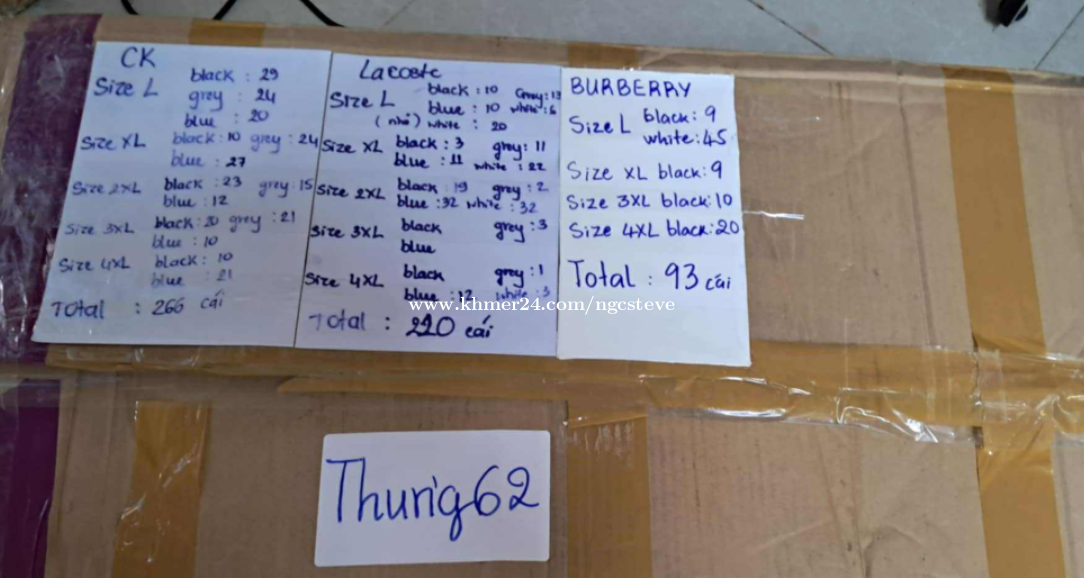 CK
Size L black : 29
grey : 24
blue : 20
Size XL black : 10 grey : 24
blue : 27
Size 2XL black : 23 grey : 15
blue : 12
Size 3XL black : 20 grey : 21
blue : 10
Size 4XL black : 10
blue : 21
Total : 266 cái
Lacoste
Size L black : 10 Grey : 13
blue : 10 white : 6
(nhỏ) white : 20
Size XL black : 3 grey : 11
blue : 11 white : 22
Size 2XL black : 19 grey : 2
blue : 32 white : 32
Size 3XL black grey : 3
blue
Size 4XL black grey : 1
blue : 12 white : 3
Total : 220 cái
BURBERRY
Size L black : 9
white : 45
Size XL black : 9
Size 3XL black : 10
Size 4XL black : 20
Total : 93 cái
www.khmer24.com/ngcsteve
Thùng 62